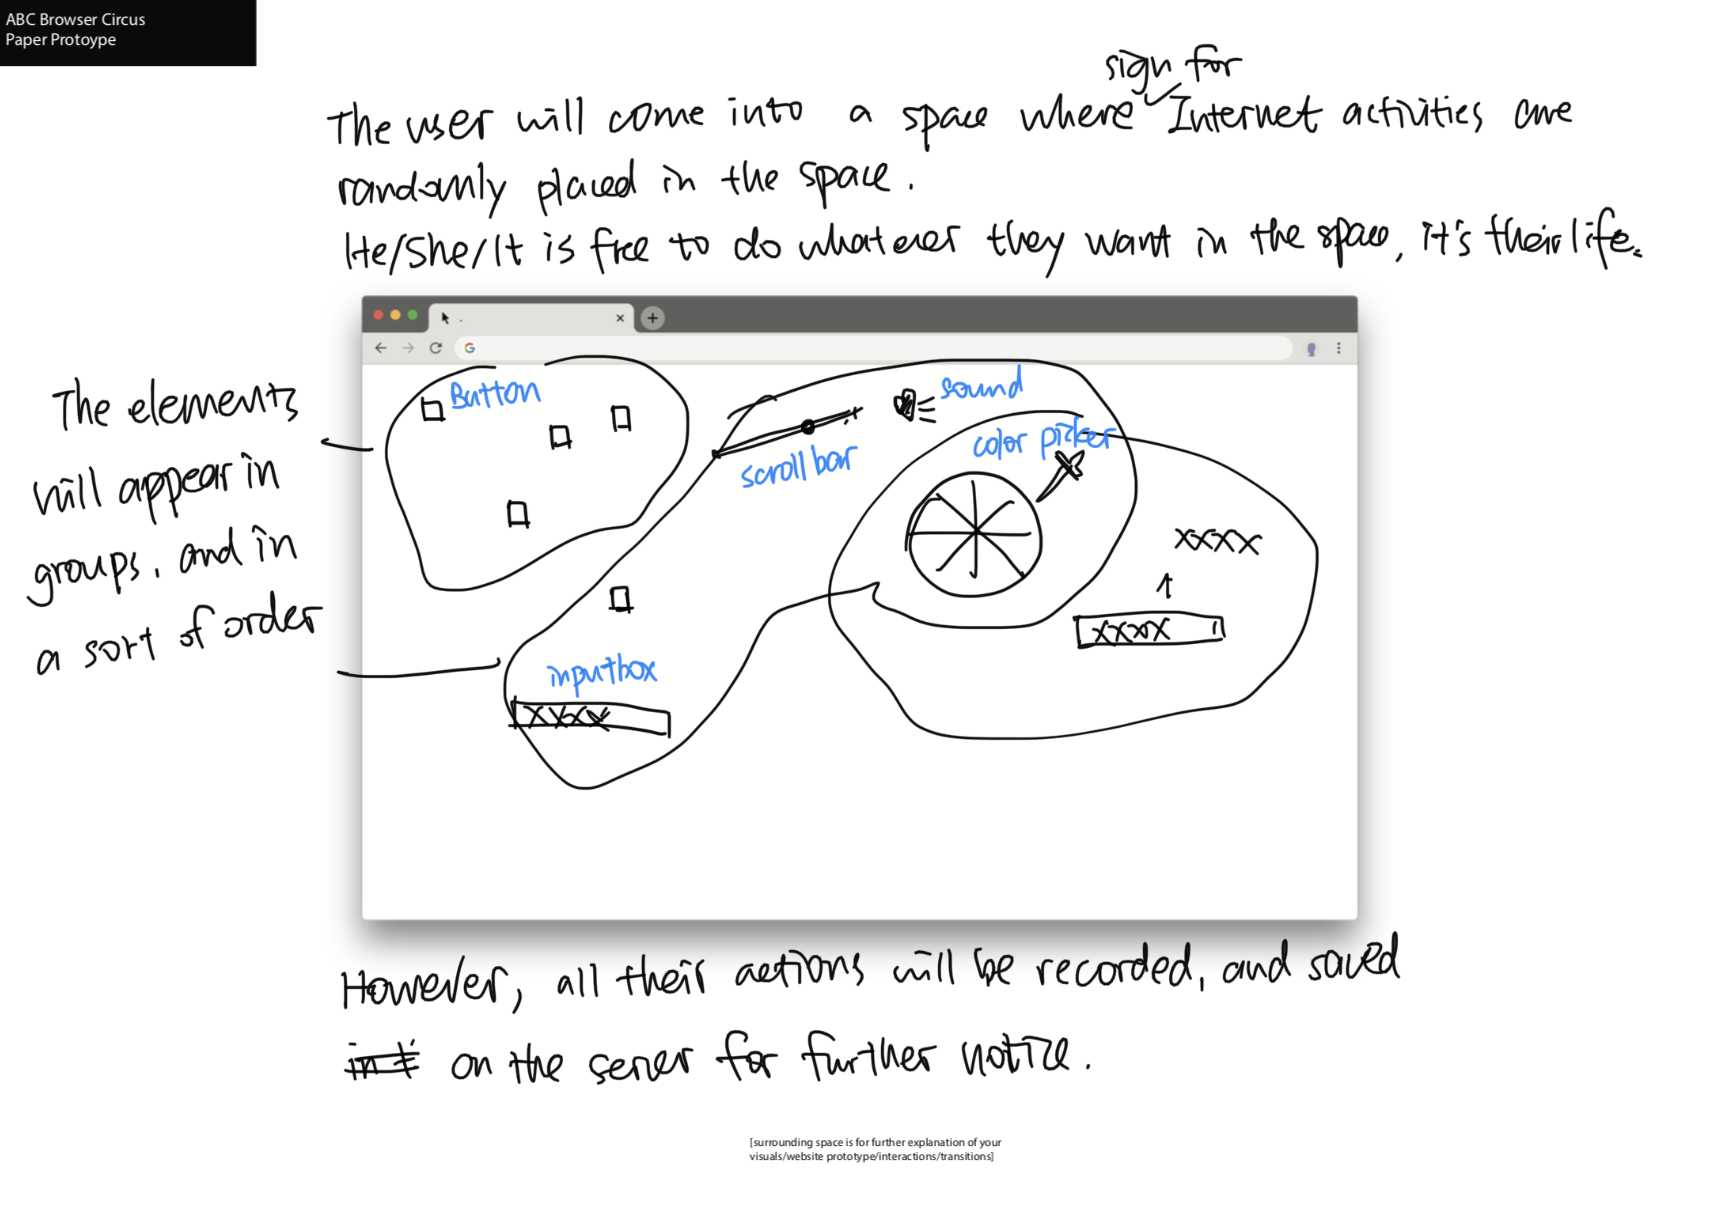 ABC Browser Circus
Paper Protoype
sign for
The user will come into a space where Internet activities are
randomly placed in the space.
He/She/It is free to do whatever they want in the space, it's their life.
The elements
will appear in
groups, and in
a sort of order
Button
sound
scroll bar
color picker
xxxx
xxxx
inputbox
xxxx
However, all their actions will be recorded, and saved
on the server for further notice.
[surrounding space is for further explanation of your
visuals/website prototype/interactions/transitions]